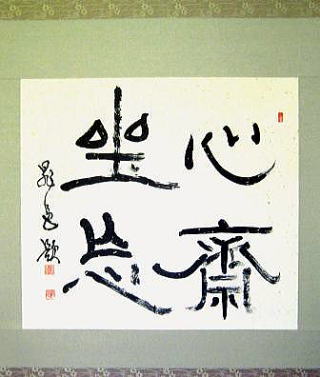 心齋
坐忘